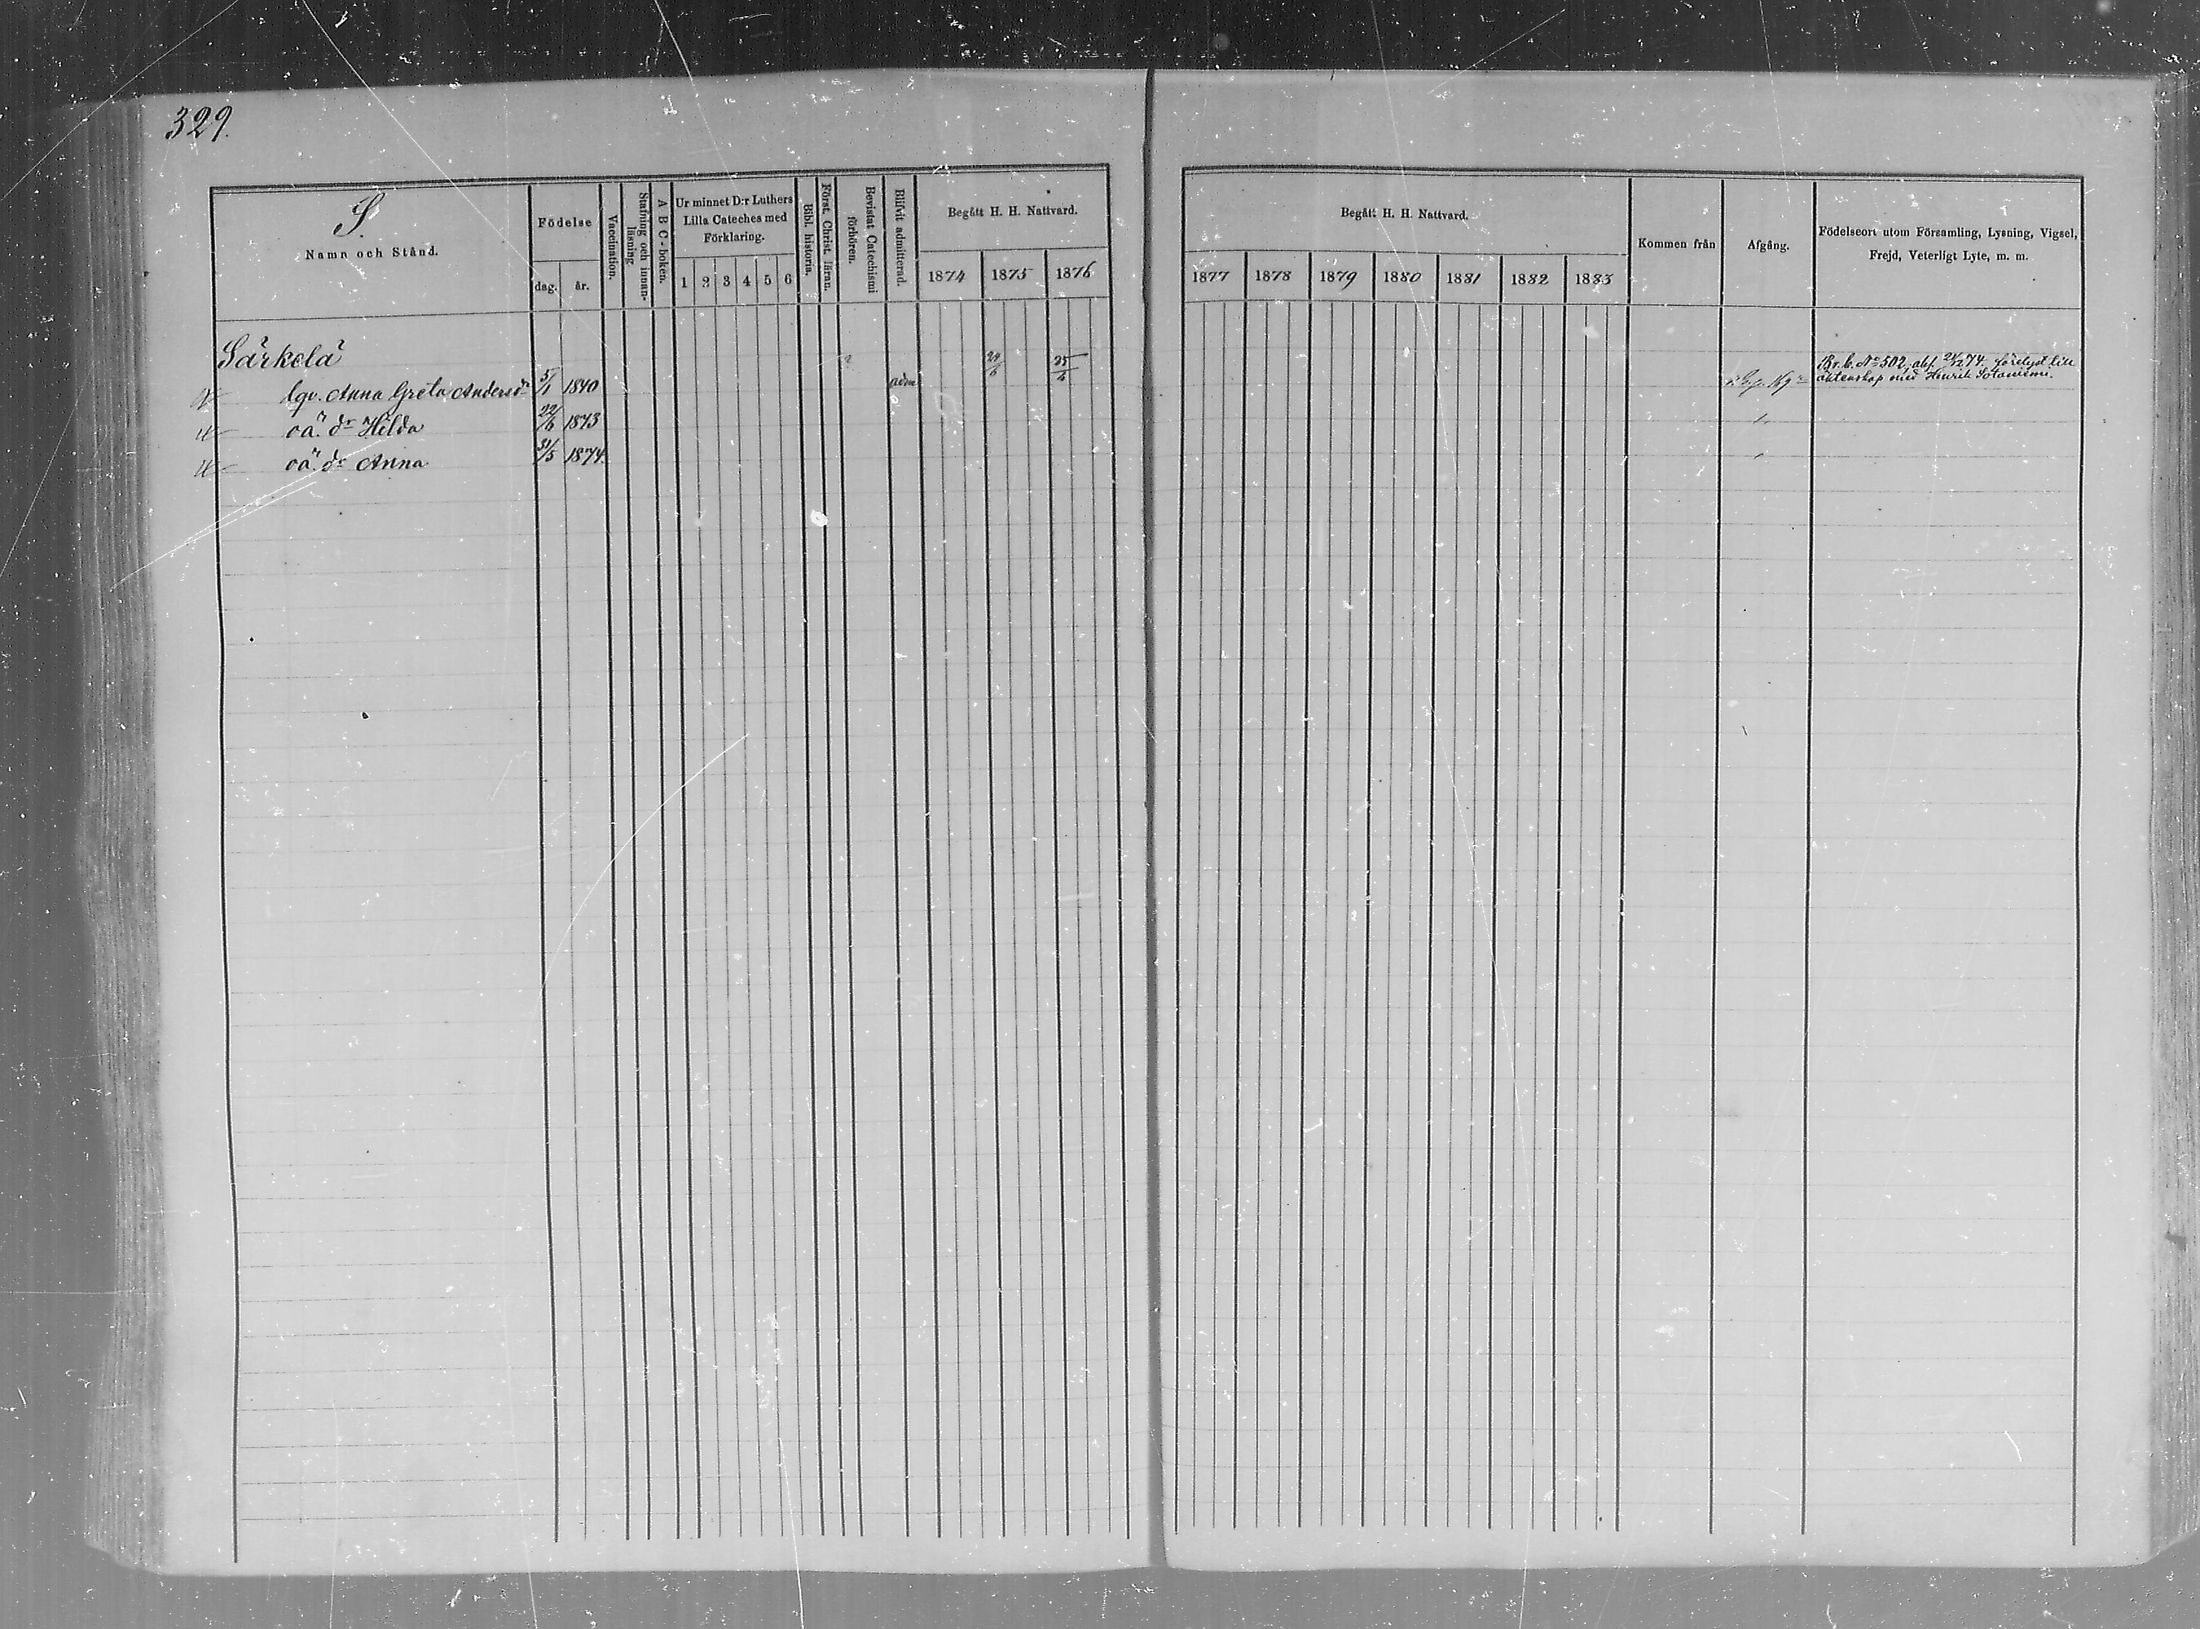 329.
S.
Namn och Stånd.
Födelse
dag. år.
Vaccination.
Stafning och innanläsning.
A B C-boken.
Ur minnet D:r Luthers Lilla Cateches med Förklaring.
1 2 3 4 5 6
Bibl. historia.
Först. Christ. läran.
Bevistat Catechismi förhören.
Blifvit admitterad.
Begått H. H. Nattvard.
1874 1875 1876
Begått H. H. Nattvard.
1877 1878 1879 1880 1881 1882 1883
Kommen från
Afgång.
Födelseort utom Församling, Lysning, Vigsel, Frejd, Veterligt Lyte, m. m.
Särkelä
lqv. Anna Greta Andersdr 5/1 1840 adm 24/6 25/6
Br. b. No 502, att. 21/12 74. förelyst till
äktenskap med Henrik Sotaniemi.
oä. dr Hilda 22/6 1873
oä. dr Anna 31/5 1874.